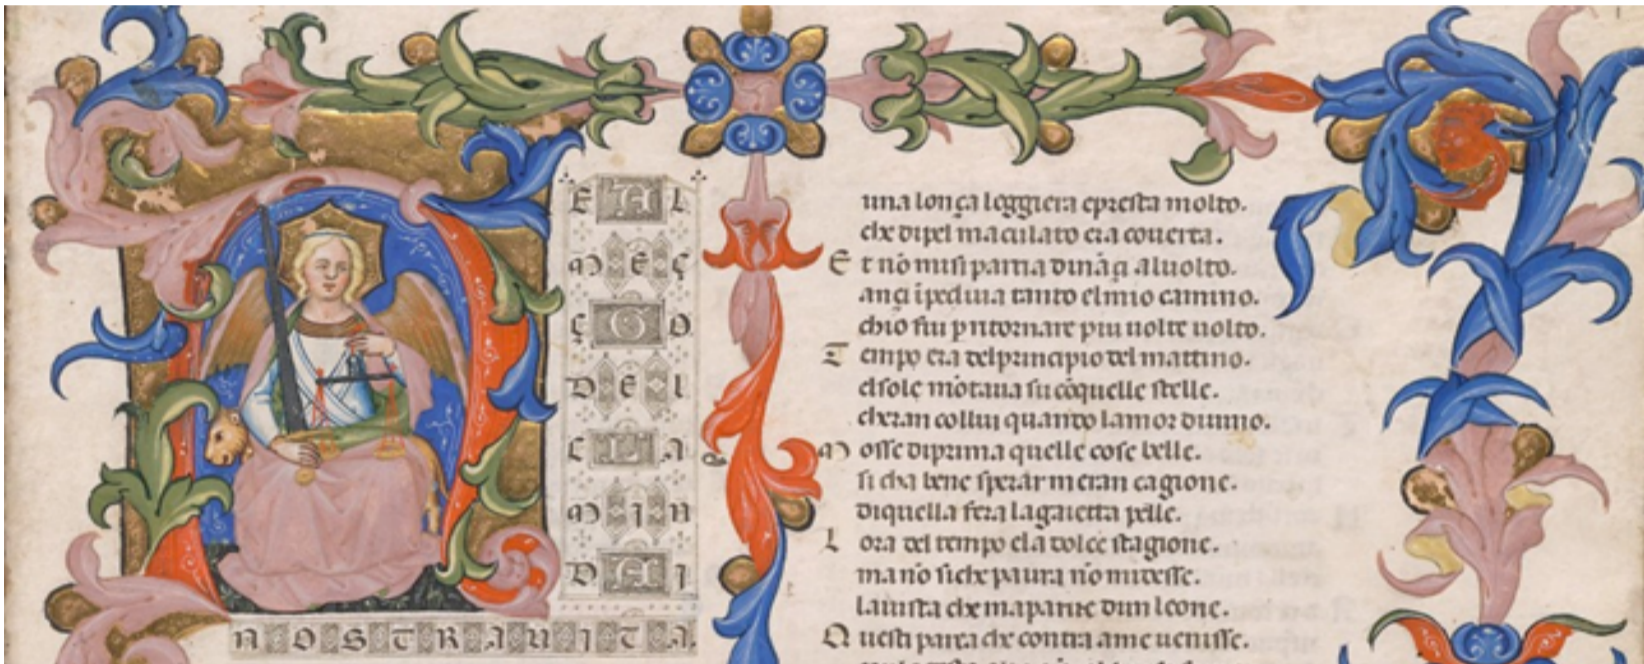 E L
M E Ç
Ç O
D E L
C A
M I N
D I
NOSTRAUITA
una lonça leggiera epresta molto.
che dipel maculato era couerta.
Et nō misi partia dināçi aluolto.
ançi īpediua tanto elmio camino.
chio fui p ritornare piu uolte uolto.
Tempo era delprincipio del mattino.
elsole mōtaua su cōquelle stelle.
cheran collui quando lamor diuino.
Mosse diprima quelle cose belle.
si cha bene sperar meran cagione.
diquella fera lagaietta pelle.
Lora del tempo ela dolce stagione.
ma nō siche paura nō midesse.
lauista che maparue dun leone.
Questi parea che contra ame uenisse.